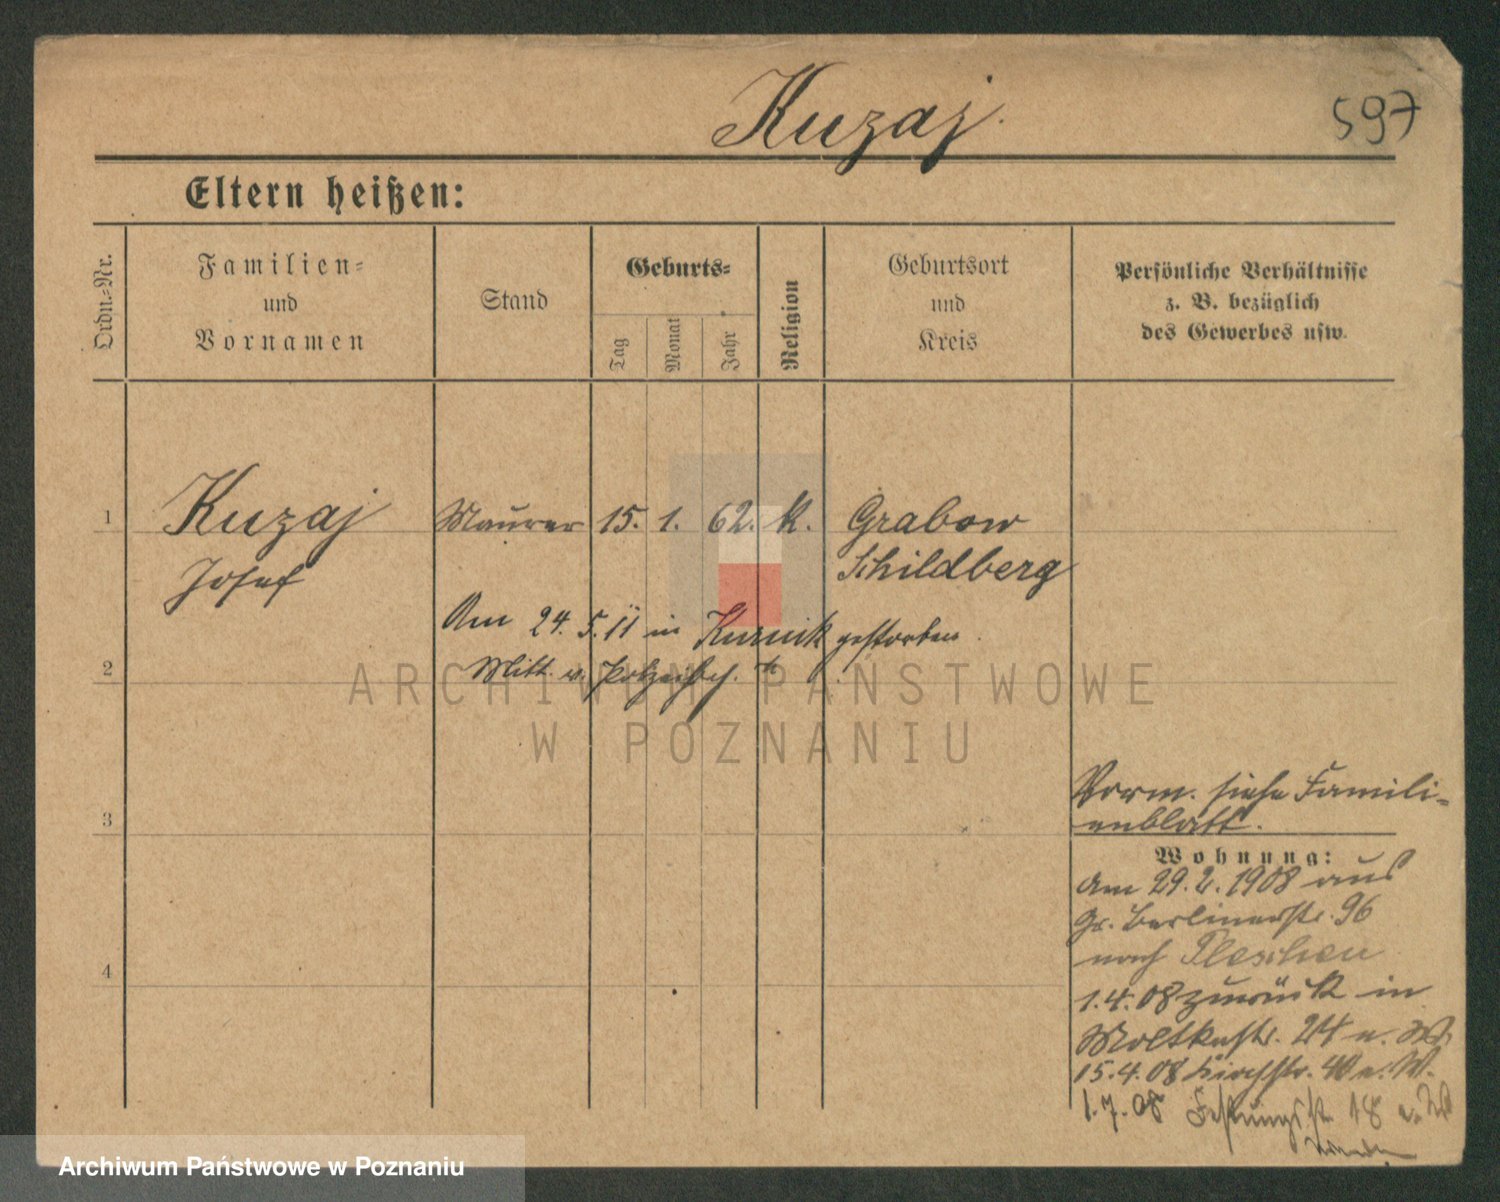 Kuzaj.
597
Eltern heißen:
Ordn.-Nr.
Familien-
und
Vornamen
Stand
Geburts-
Tag
Monat
Jahr
Religion
Geburtsort
und
Kreis
Persönliche Verhältnisse
z. B. bezüglich
des Gewerbes usw.
1
Kuzaj Maurer 15. 1. 62. k. Grabow
Josef Schildberg
Am 24. 5. 11 in Kurnik gestorben.
Mitt. v.
2
3
4
Vorm. siehe Famili-
enblatt.
Wohnung:
Am 29. 2. 1908 aus
Gr. Berlinerstr. 96
nach Pleschen
1.4.08 zurück in
Moltkestr. 24 u. W.
15.4.08 Kirchstr. 40 u. W.
1.7.08 Festungsstr. 18
ARCHIWUM PAŃSTWOWE
W POZNANIU
Archiwum Państwowe w Poznaniu